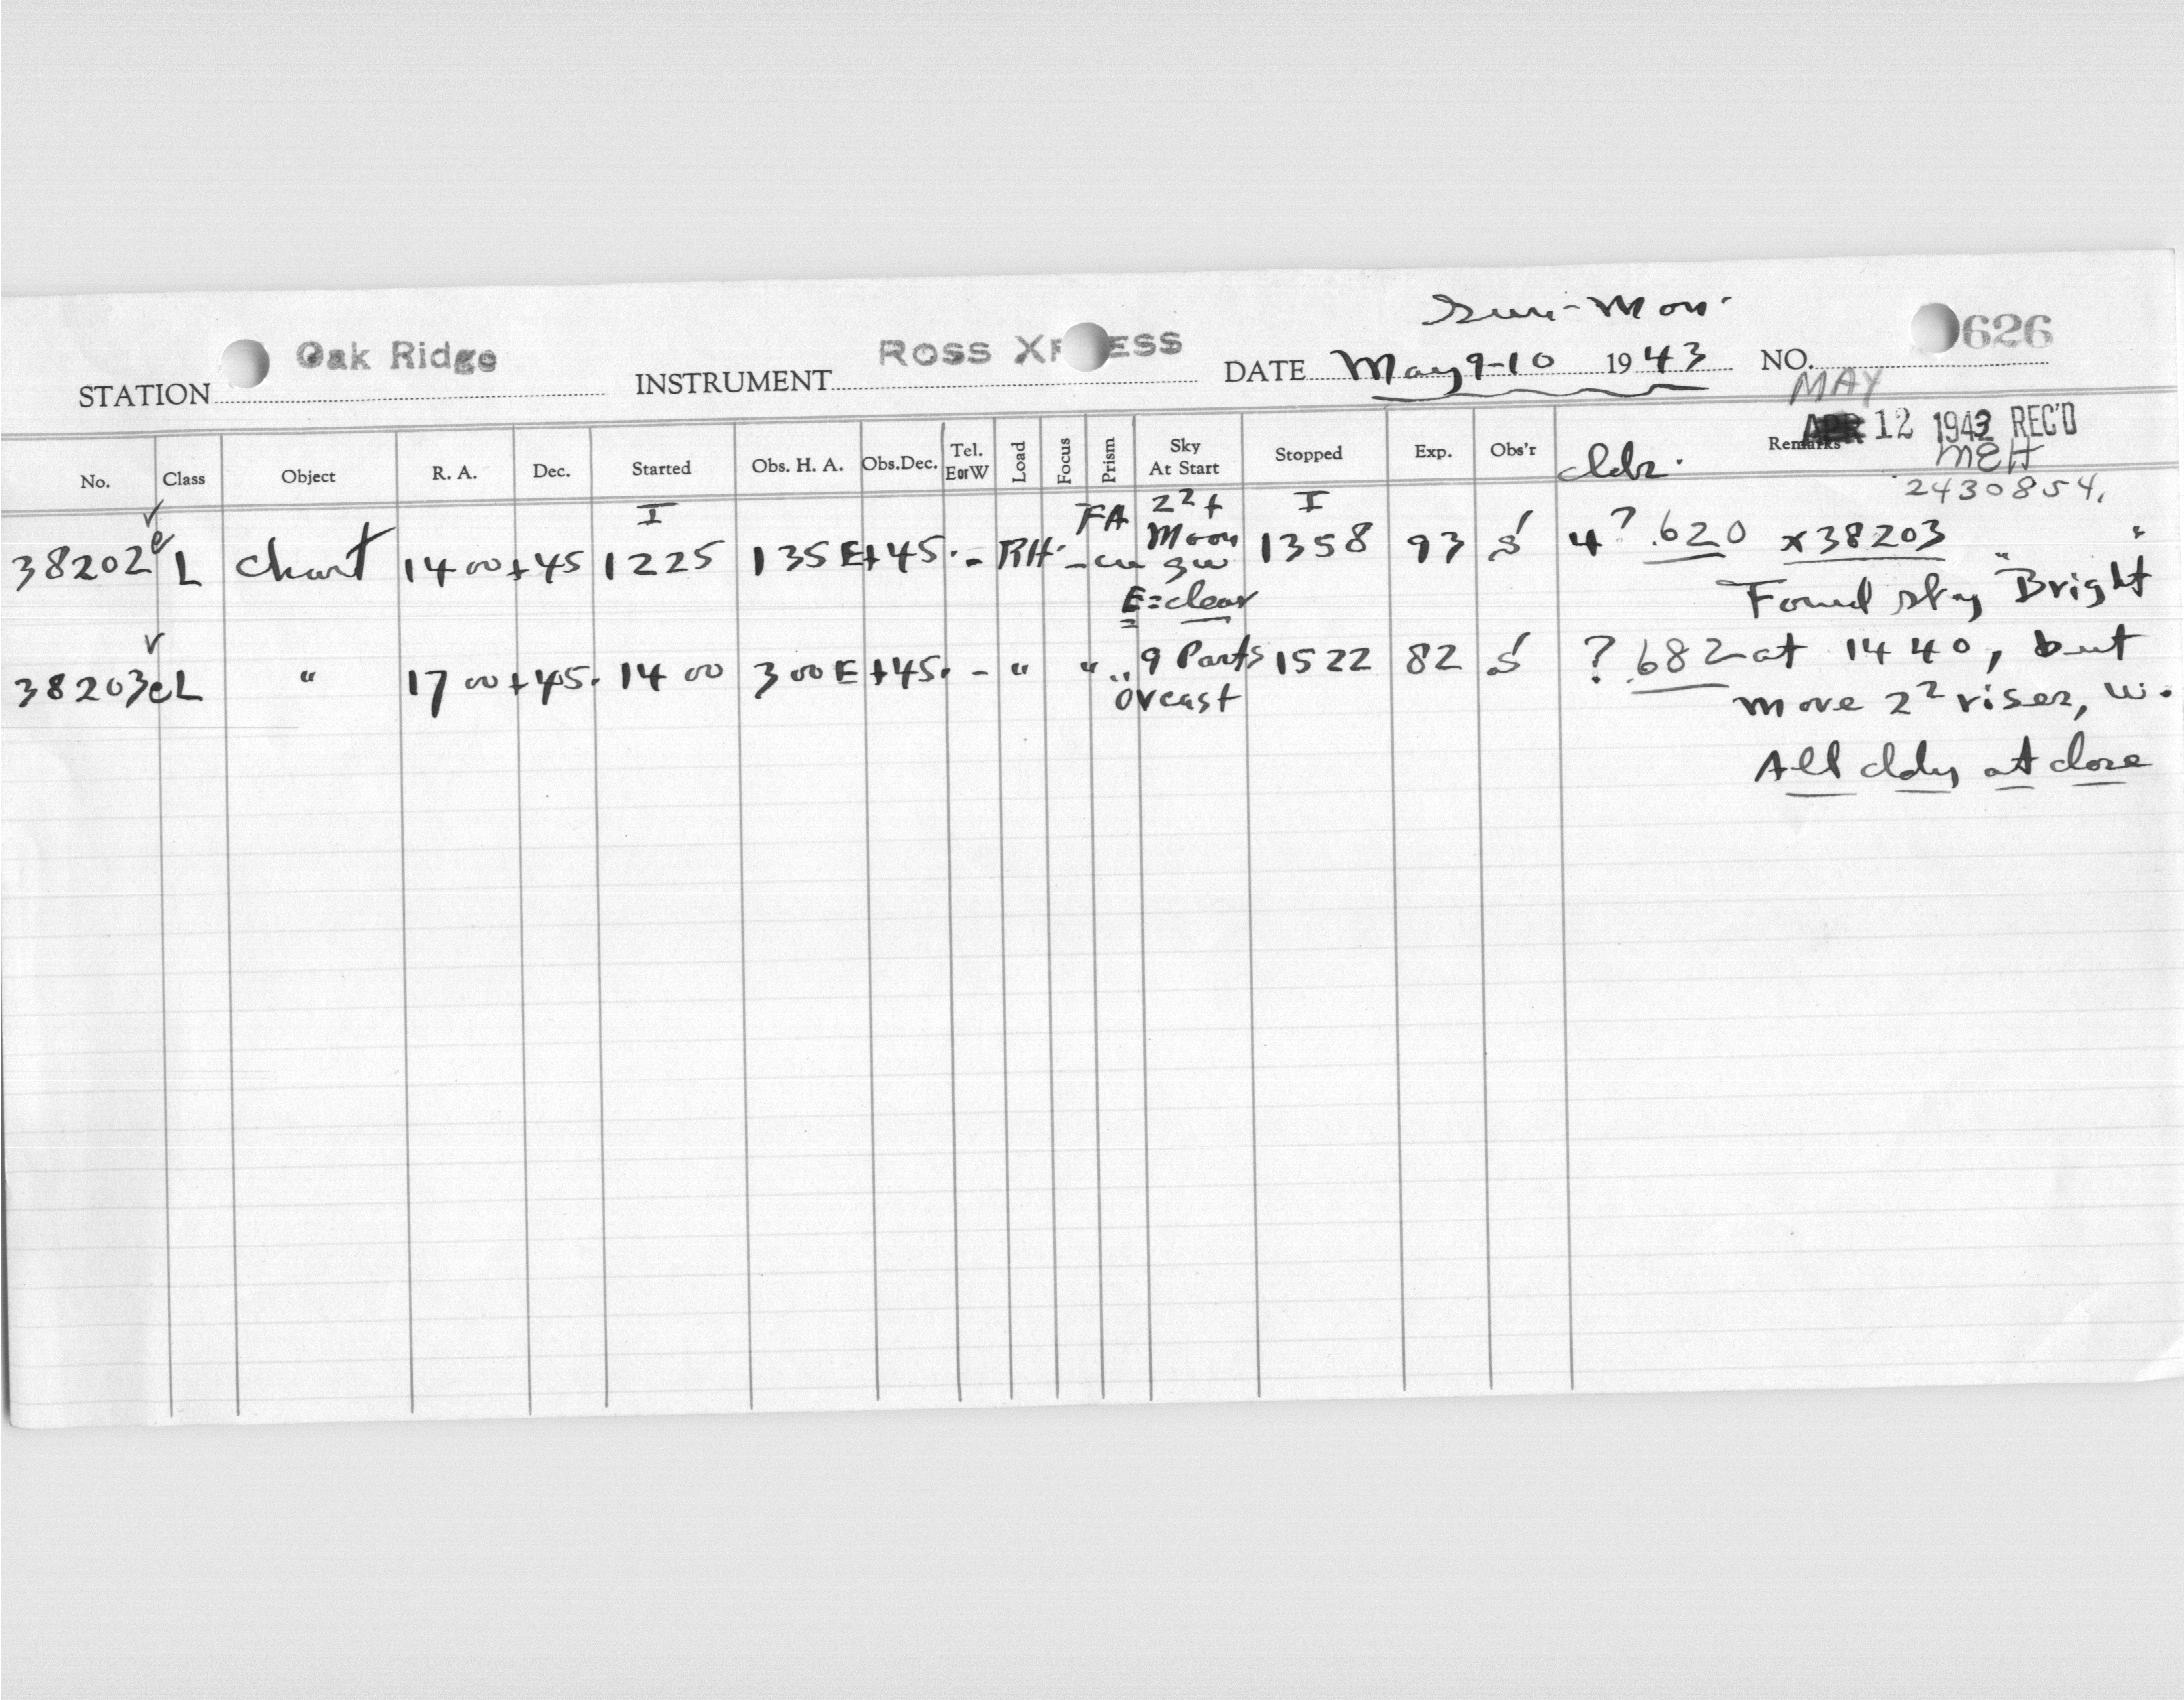 Sun-Mon.
STATION Oak Ridge INSTRUMENT ROSS XPRESS DATE May 9-10 1943 NO. 626
MAY
APR 12 1943 REC'D
MEH
No. Class Object R. A. Dec. Started Obs. H. A. Obs.Dec. Tel. EorW Load Focus Prism Sky At Start Stopped Exp. Obs'r cldz. Remarks
2430854.
I FA 2²+ I
38202 e L chart 14 00 +45 1225 135 E +45. - RH. - Moon 1358 93 S 4? .620 x38203
E=clear Found sky "Bright"
38203 e L " 17 00 +45. 14 00 3 00 E +45. - " " " 9 Parts 1522 82 S ? .682 at 1440, but
ovcast more 2² rises, w.
All cldy at close